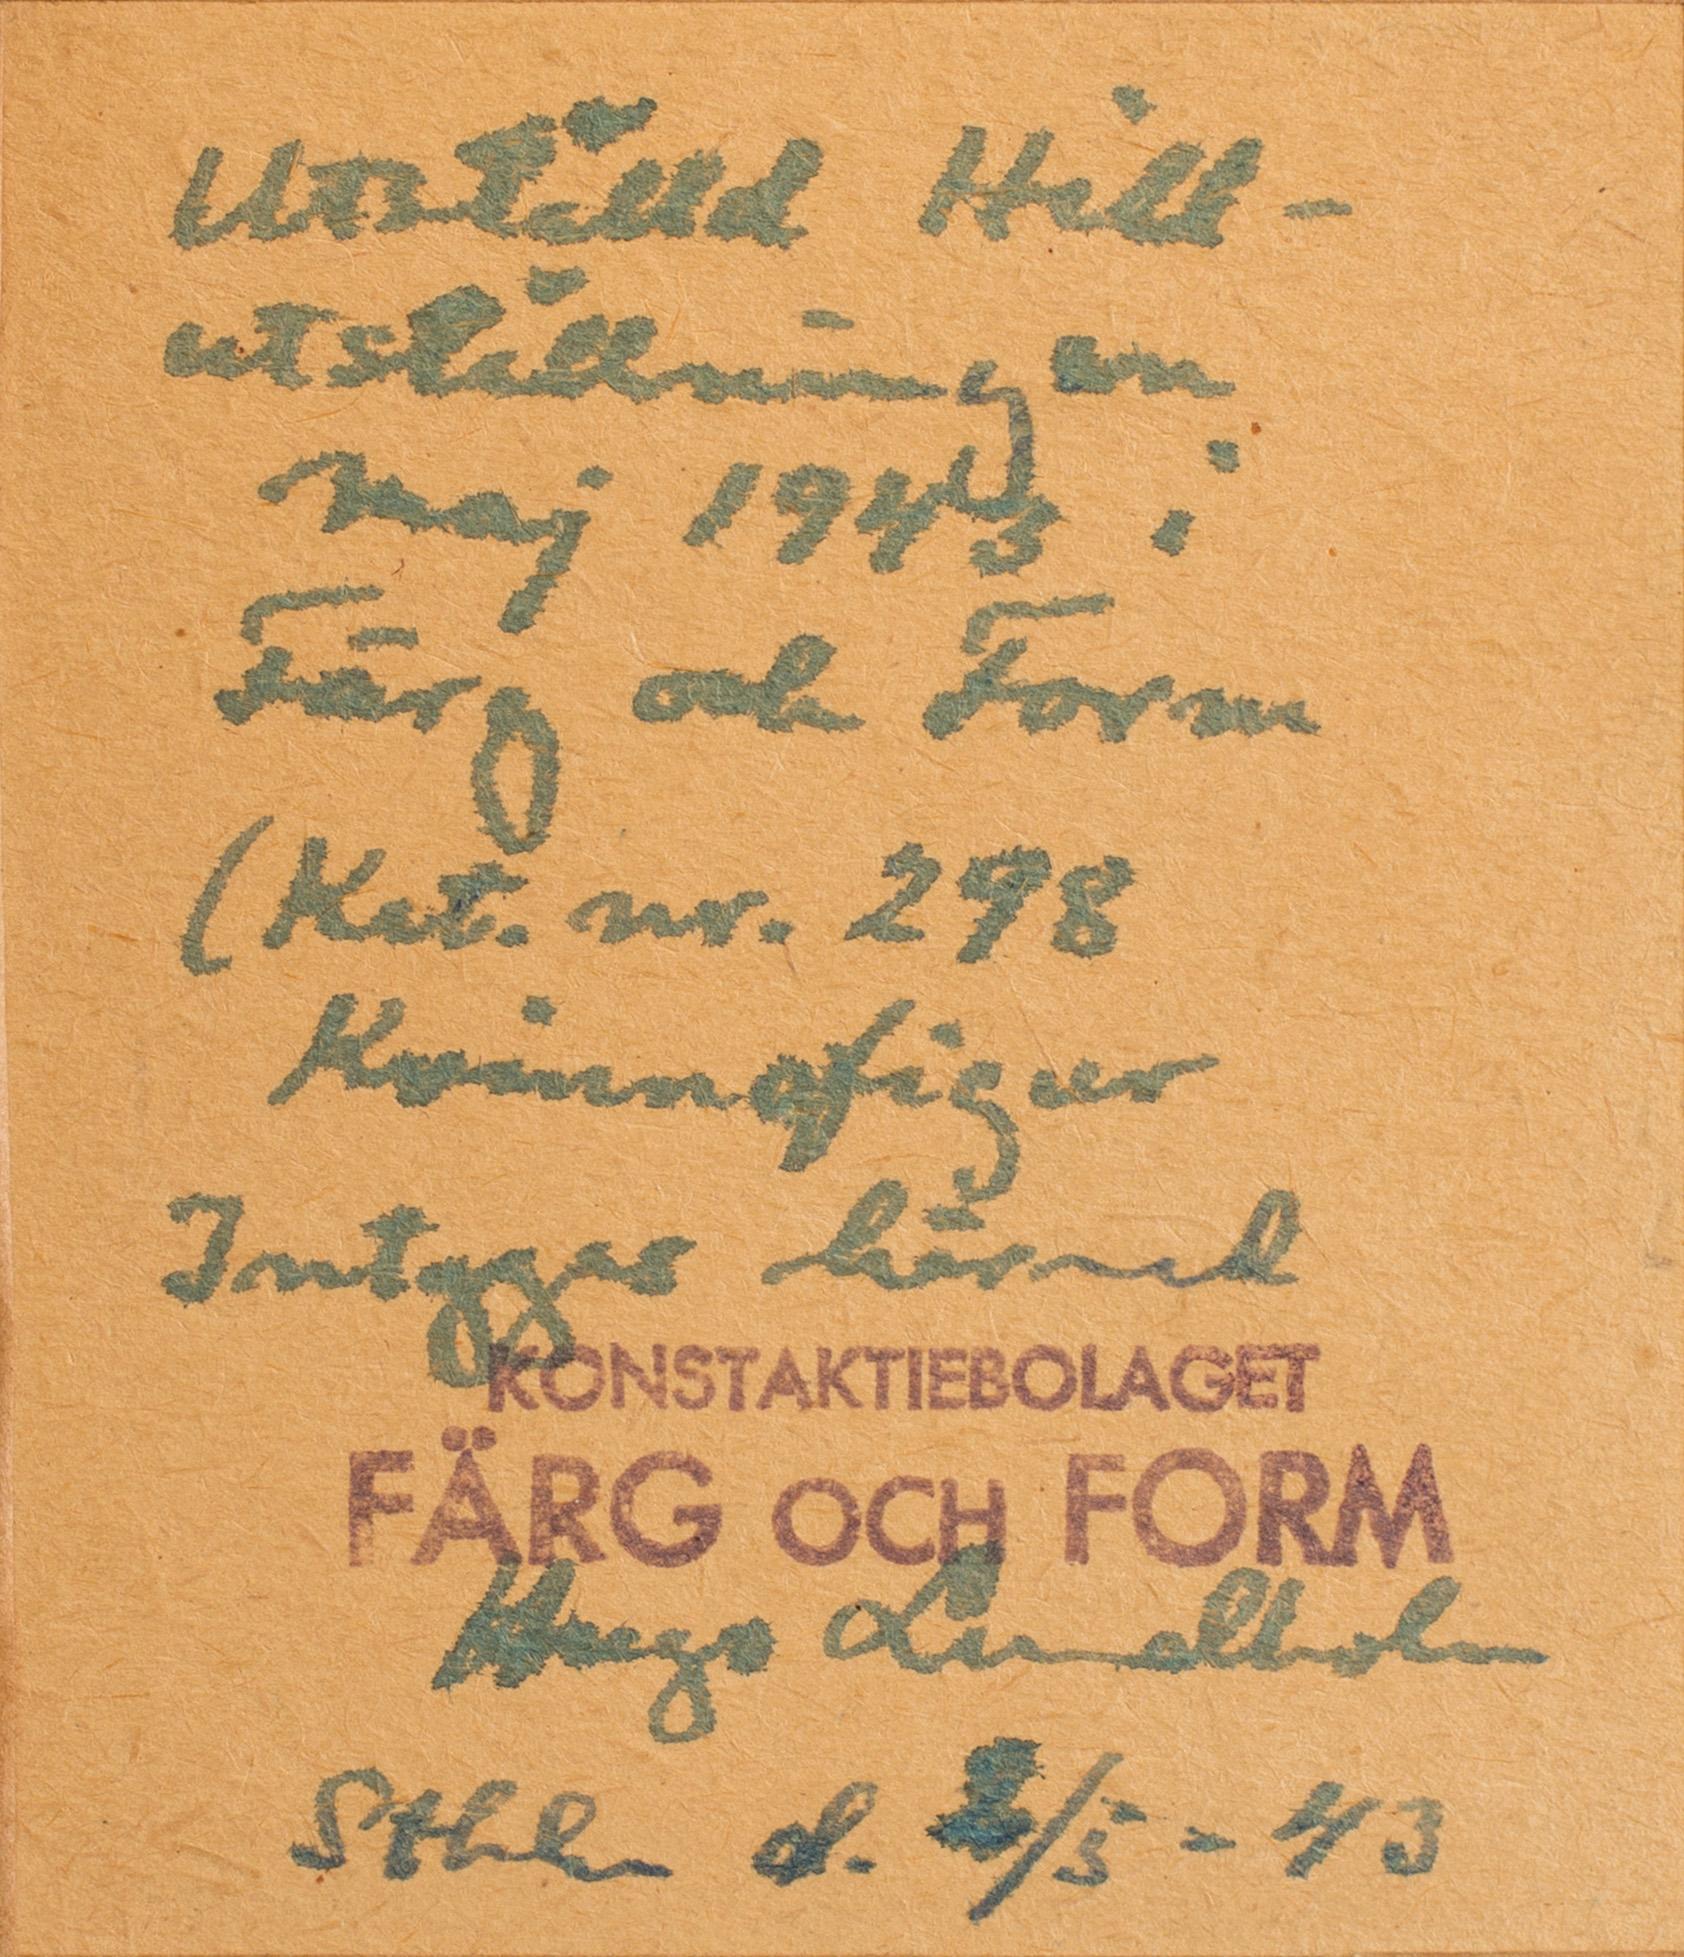 Utställd Hill-
utställningen
Maj 1943 i
Färg och Form
(Kat. nr. 298
Kvinnofigur
Intygas härmed
KONSTAKTIEBOLAGET
FÄRG OCH FORM
Hugo Lundholm
Sthlm d. /5 - 43